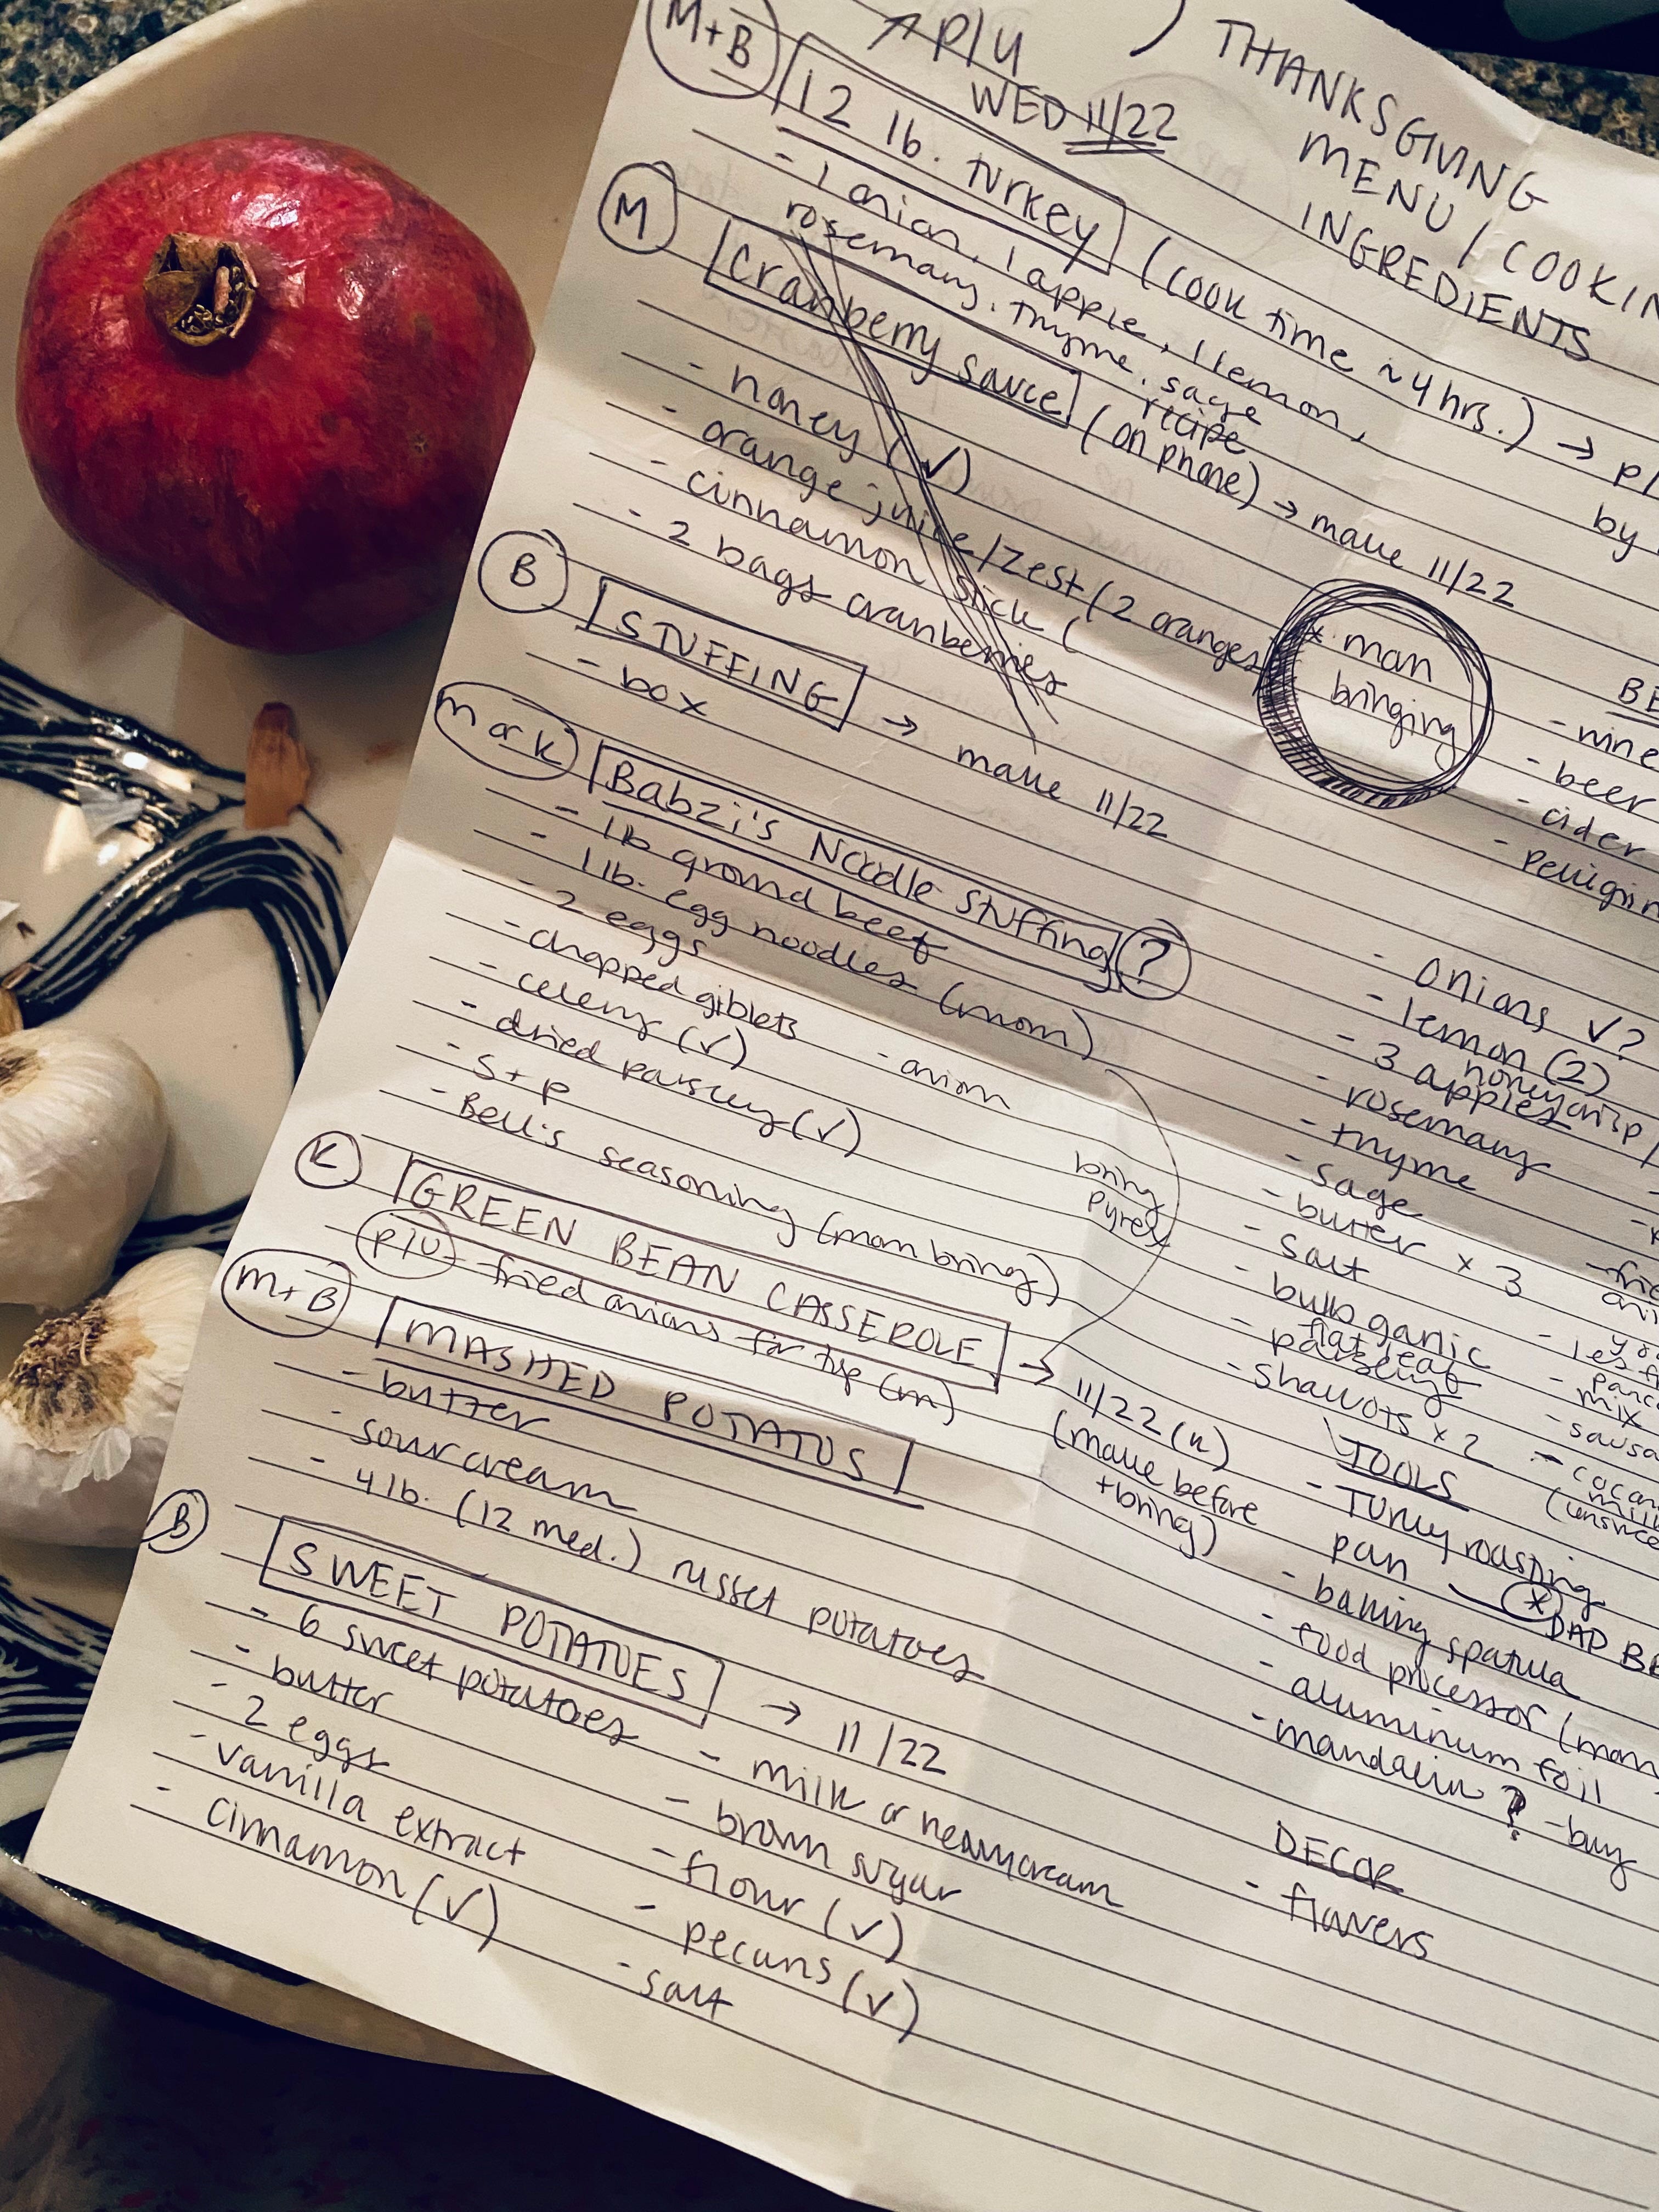 M+B
P/U
WED 11/22
THANKSGIVING
MENU / COOKIN
INGREDIENTS
12 lb. turkey (cook time ~4 hrs.) → P/
- 1 onion, 1 apple, 1 lemon,
rosemary, thyme, sage
by
M
Cranberry sauce (on phone) → make 11/22
recipe
- honey (✓)
- orange juice/zest (2 oranges
- cinnamon stick (
- 2 bags cranberries
* mom
bringing
B
STUFFING → make 11/22
- box
M or K
Babzi's Noodle Stuffing ?
- 1 lb ground beef
- 1 lb. egg noodles (mom)
- 2 eggs
- chopped giblets
- onion
- celery (✓)
- dried parsley (✓)
- S+P
- Bell's seasoning (mom bring)
bring
Pyrex
K
GREEN BEAN CASSEROLE → 11/22 (K)
(make before
+ bring)
P/U - fried onions for top (m)
M+B
MASHED POTATOS
- butter
- sour cream
- 4 lb. (12 med.) russet potatoes
B
SWEET POTATOES → 11/22
- 6 sweet potatoes
- butter
- 2 eggs
- vanilla extract
- cinnamon (✓)
- milk or heavy cream
- brown sugar
- flour (✓)
- pecans (✓)
- salt
BE
- wine
- beer
- cider
- onions ✓?
- lemon (2)
- 3 apples
honeycrisp /
- rosemary
- thyme
- sage
- butter x 3
- salt
- bulb garlic
- flat leaf
parsley
- shallots x 2
- sausa
mix
TOOLS
- Turkey roasting
pan
* DAD BR
- basting spatula
- food processor (mom
- aluminum foil
- mandolin ? - buy
DECOR
- flowers